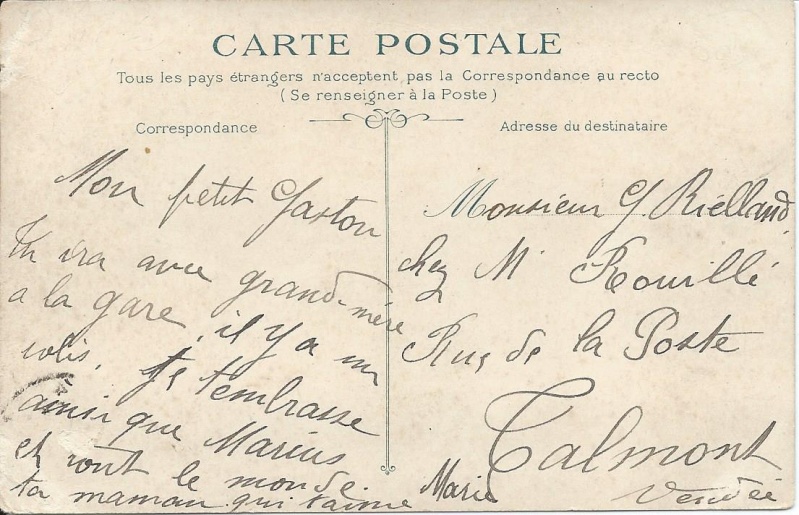 CARTE POSTALE
Tous les pays étrangers n'acceptent pas la Correspondance au recto
(Se renseigner à la Poste)
Correspondance
Adresse du destinataire
Mon petit Gaston
Tu ira avec grand-mère
a la gare, il y a un
colis. Je t'embrasse
ainsi que Marius
et tout le monde.
ta maman qui t'aime Marie
Monsieur G Riélland
chez Mr Rouillé
Rue de la Poste
Talmont
Vendée